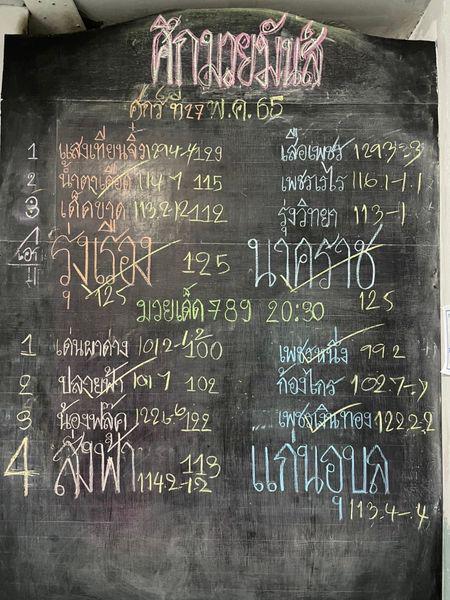 ศึกมวยมันส์
ศุกร์ ที่ 27 พ.ค. 65
1 แสงเทียนจิ๋ว 129.4-.4 129 เสือเพชร 129.3-.3
2 น้ำตาเดือด 114.7 115 เพชรเรไร 116.1-1.1
3 เด็ดขาด 113.2-1.2 112 รุ่งวิทยา 113-1
รุ่งเรือง 125 นาคราช
125 125
มวยเด็ด 789 20:30
1 เด่นผาด่าง 101.2-1.2 100 เพชรหนึ่ง 99.2
2 ปลายฟ้า 101.7 102 ก้องไกร 102.7-.7
3 น้องฟลุ๊ค 122.6-.6 122 เพชรเงินทอง 122.2-.2
4 สิงฟ้า 114.2-1.2 113 แก่นอุบล
113.4-.4